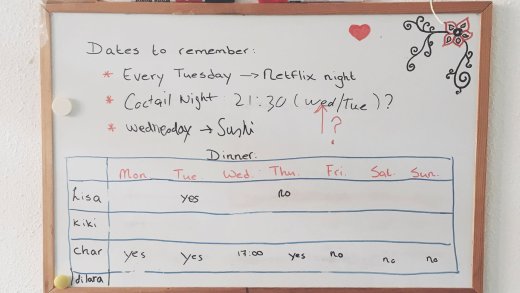 Dates to remember:
* Every Tuesday → Netflix night
* Coctail Night: 21:30 (wed/Tue)?
?
* wednesday → Sushi
Dinner.
Mon. Tue. Wed. Thu. Fri. Sat. Sun.
Lisa yes no
kiki
char yes yes 17:00 yes no no no
dilara